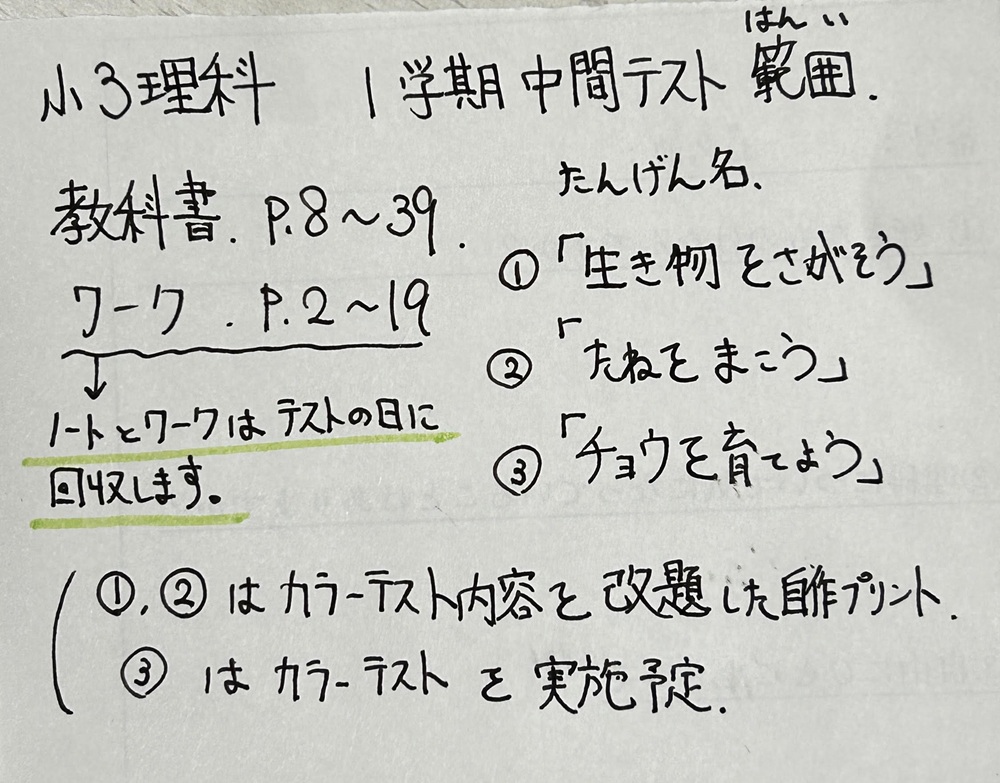 はんい
小3理科 1学期中間テスト 範囲.
教科書. P.8～39.
ワーク. P.2～19
ノートとワークはテストの日に
回収します。
たんげん名.
①「生き物をさがそう」
②「たねをまこう」
③「チョウを育てよう」
(①,②はカラーテスト内容を改題した自作プリント.
③はカラーテストを実施予定.